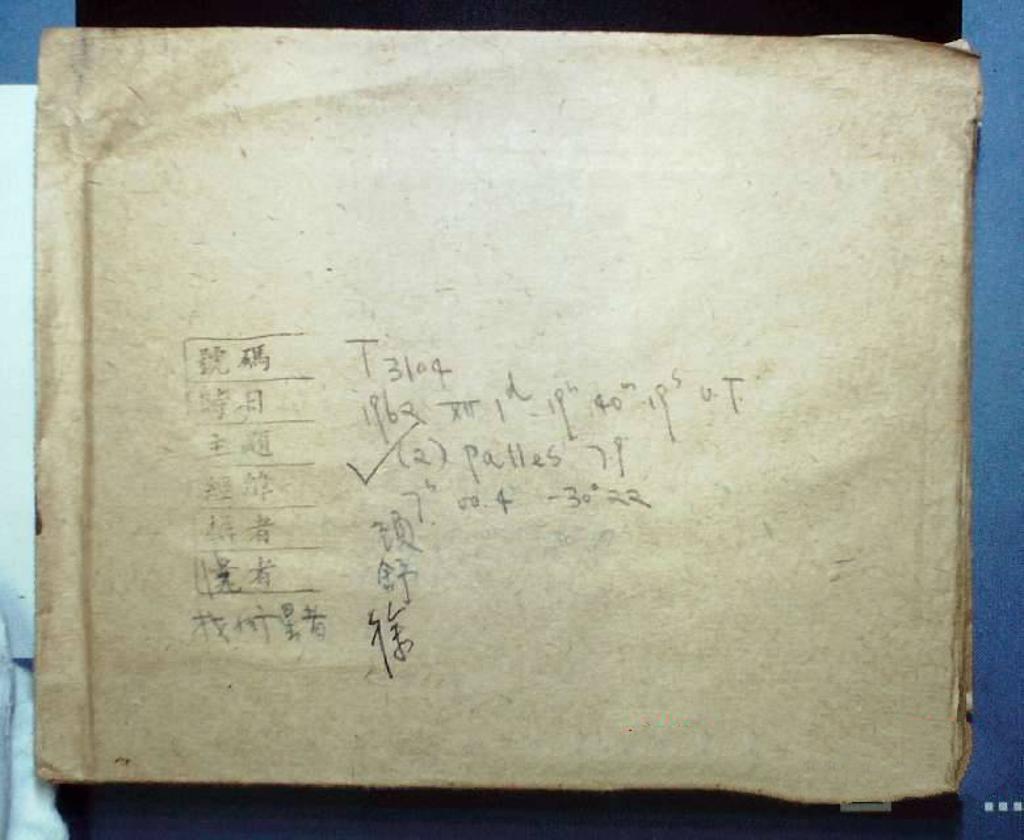 號碼 T3104
時日 1962 XII 1ᵈ 19ʰ 40ᵐ 19ˢ U.T.
主題 ✓ (2) Palles 79
經緯 7ʰ 00.4 -30°22
者 項
者 舒
找伺星者 徐